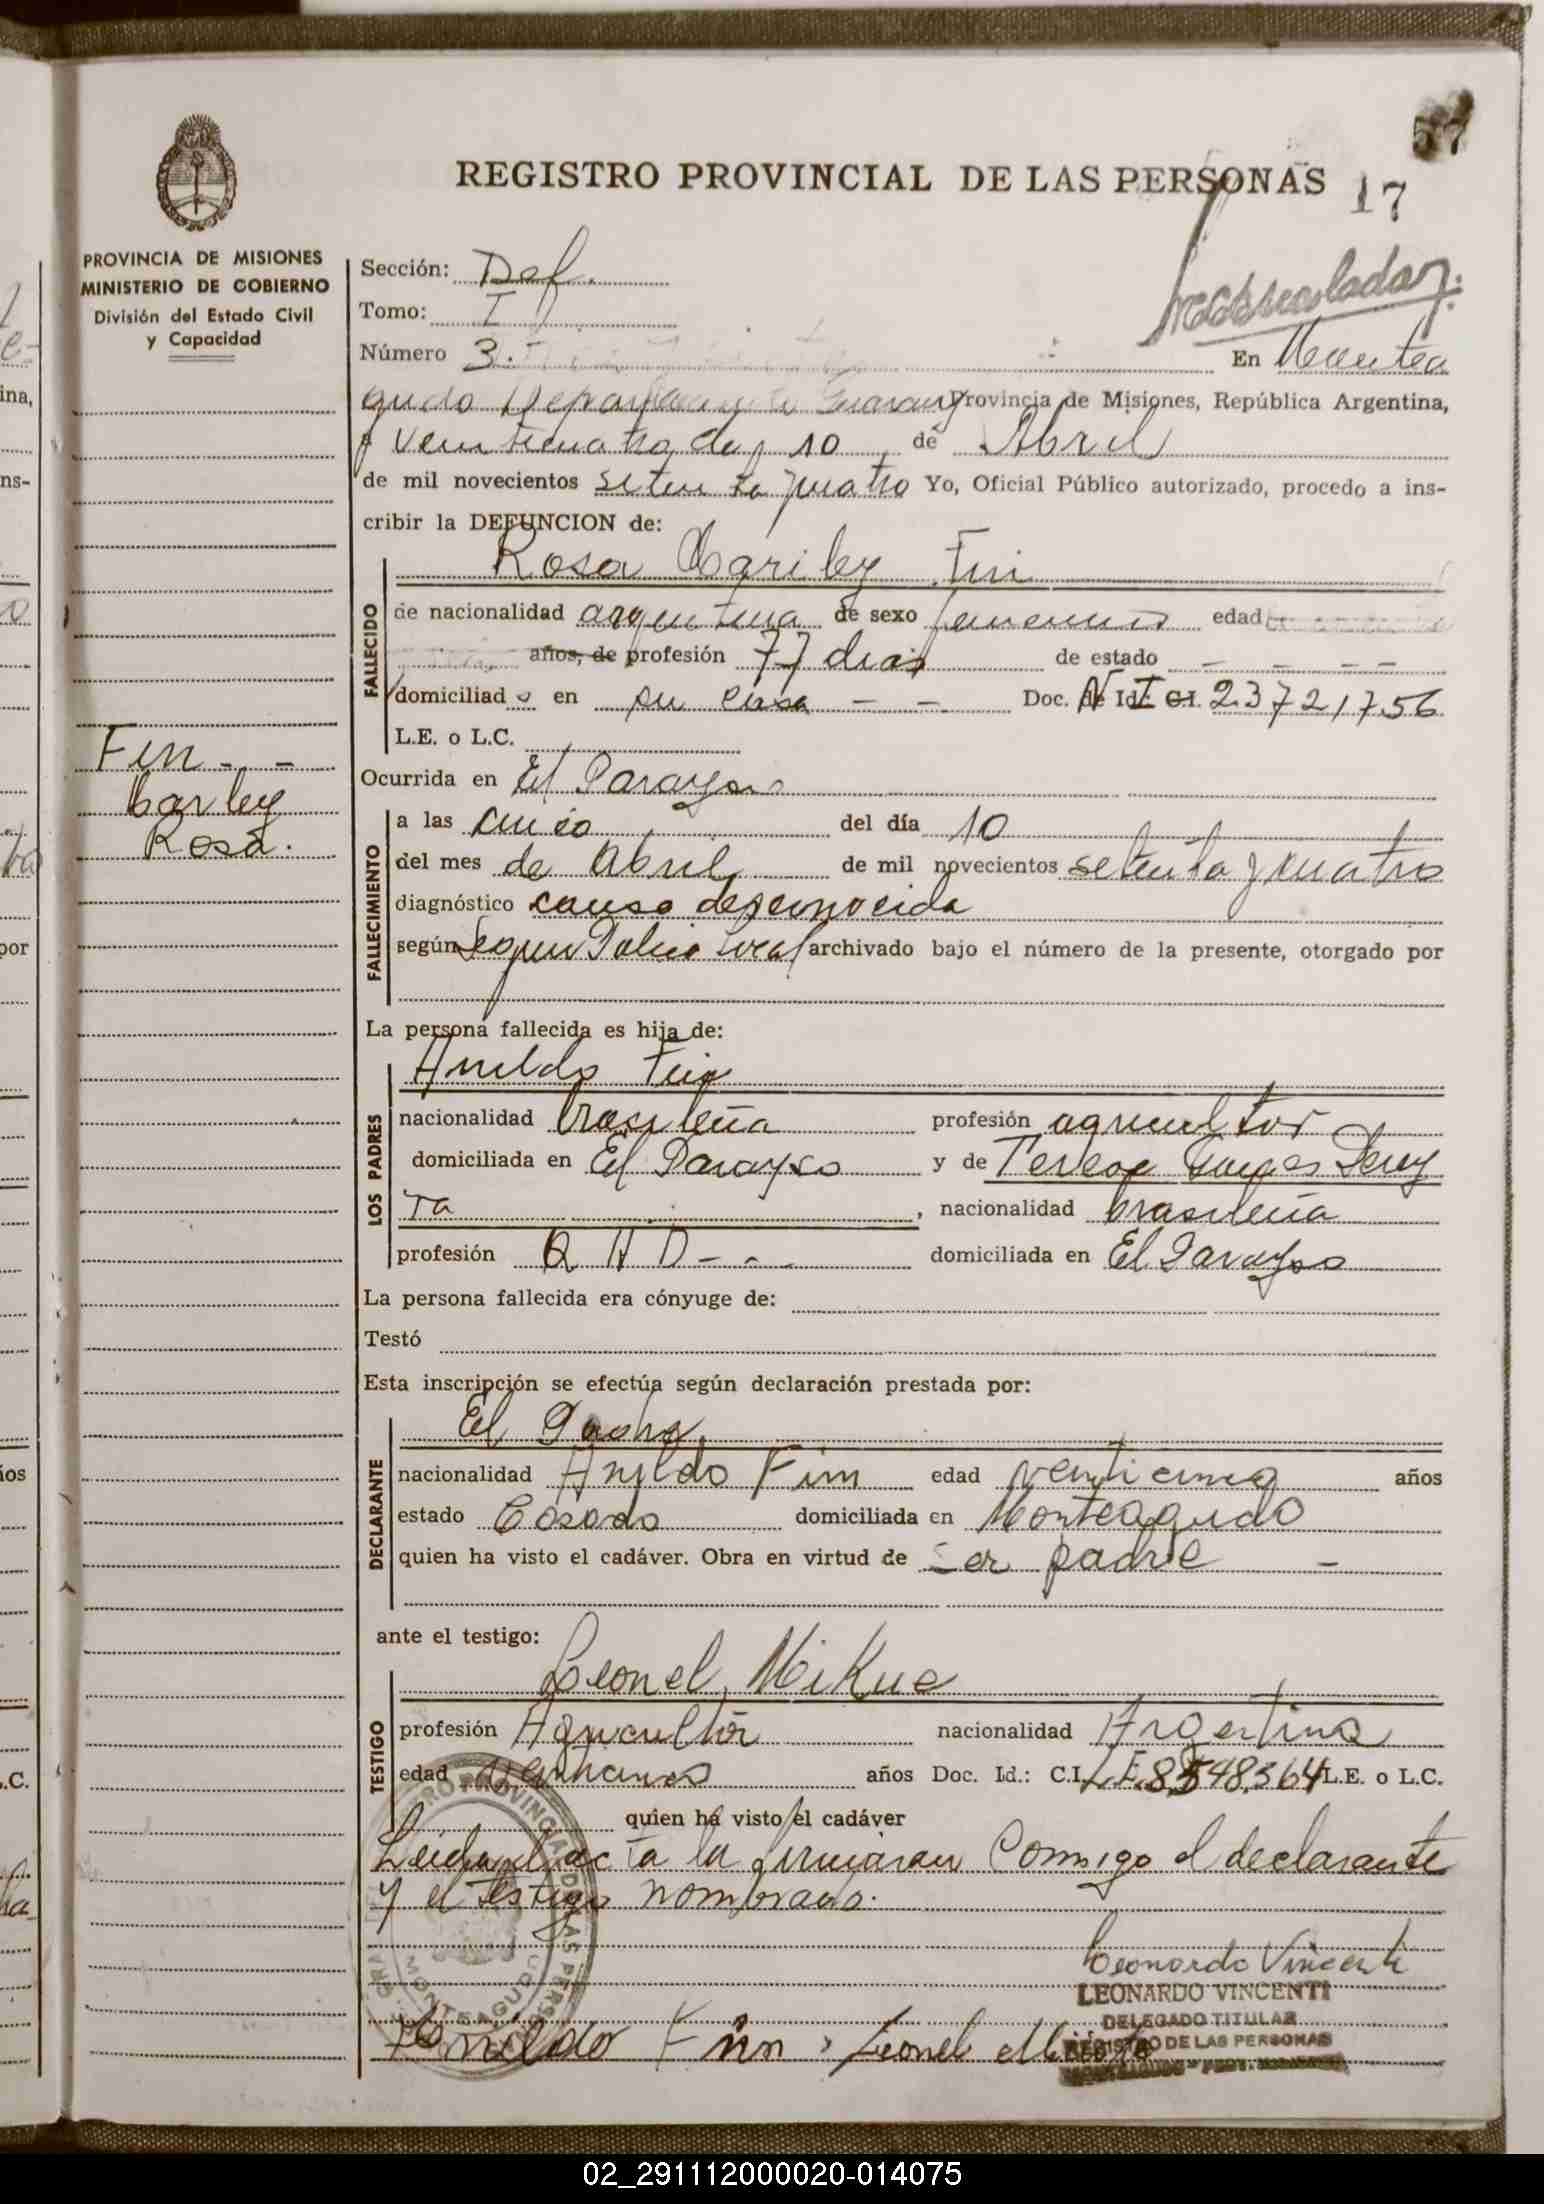 57
REGISTRO PROVINCIAL DE LAS PERSONAS 17
PROVINCIA DE MISIONES
MINISTERIO DE GOBIERNO
División del Estado Civil
y Capacidad
Fin - -
Carley
Rosa.
Sección: Def.
Tomo: I
Número 3. En Montea
gudo Departamento Guarany Provincia de Misiones, República Argentina,
a veinticuatro de 10 de Abril
de mil novecientos setenta y cuatro Yo, Oficial Público autorizado, procedo a ins-
cribir la DEFUNCION de:
Rosa Fin
FALLECIDO
de nacionalidad argentina de sexo femenino edad
años, de profesión 77 dias de estado - - - -
domiciliado en su casa - - Doc. de Id: C.I. N I 23721756
L.E. o L.C.
Ocurrida en El Parayso
FALLECIMIENTO
a las cinco del día 10
del mes de Abril de mil novecientos setenta y cuatro
diagnóstico causa desconocida
según Segun Policia local archivado bajo el número de la presente, otorgado por
La persona fallecida es hija de:
LOS PADRES
Anildo Fin
nacionalidad brasileña profesión agricultor
domiciliada en El Parayso y de Teresa
ra, nacionalidad brasileña
profesión Q H D - - - domiciliada en El Parayso
La persona fallecida era cónyuge de:
Testó
Esta inscripción se efectúa según declaración prestada por:
DECLARANTE
El Padre
nacionalidad Anildo Fin edad venticinco años
estado Casado domiciliada en Monteagudo
quien ha visto el cadáver. Obra en virtud de ser padre -
ante el testigo:
TESTIGO
Leonel
profesión Agricultor nacionalidad Argentina
edad años Doc. Id.: C.I. L.E. 8548364 L.E. o L.C.
quien ha visto el cadáver
Leida el acta la firmaran Comigo el declarante
y el testigo nombrado.
Leonardo Vincenti
LEONARDO VINCENTI
DELEGADO TITULAR
REGISTRO DE LAS PERSONAS
MONTEAGUDO
Anildo Fin Leonel
02_291112000020-014075